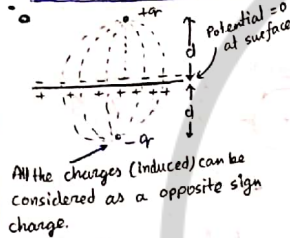 +q
Potential = 0
at surface
d
+ + + + + + + +
d
-q
All the charges (induced) can be
considered as a opposite sign
charge.